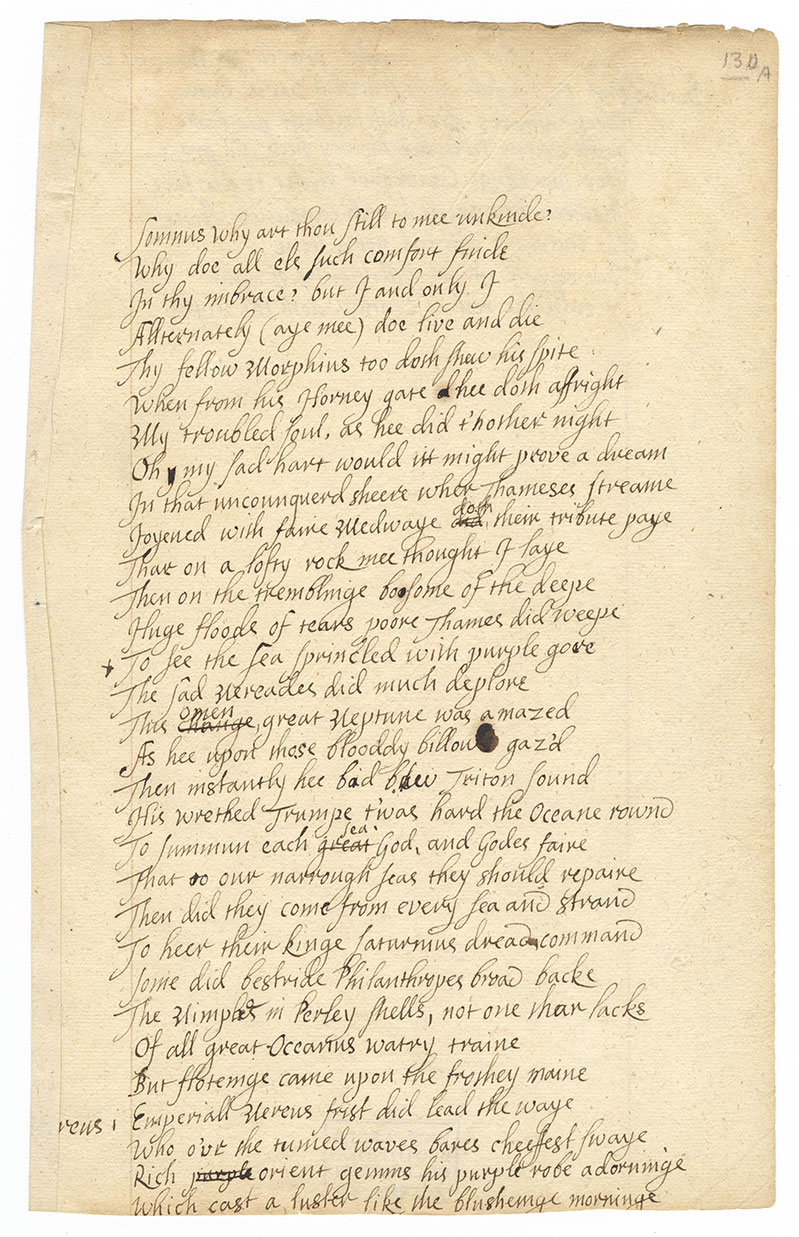 130
A
Somnus why art thou still to mee unkinde?
Why doe all els such comfort finde
In thy imbrace? but I and only I
Allternately (aye mee) doe live and die
Thy fellow Morphius too doth shew his spite
When from his Horney gate hee doth affright
My troubled soul, as hee did t'hother night
Oh my sad hart would itt might prove a dream
In that uncounquerd sheere wher Thameses streame
Joyened with faire Medwaye did doth their tribute paye
That on a lofty rock mee thought I laye
Then on the tremblinge boosome of the deepe
Huge floods of tears poore Thames did weepe
To see the sea sprincled with purple gore
The sad Nereades did much deplore
This change omen, great Neptune was amazed
As hee upon those blooddy billow gaz'd
Then instantly hee bid blew Triton sound
His wrethed Trumpe t'was hard the Oceane round
To summun each great sea God, and Godes faire
That to our narrough seas they should repaire
Then did they come from every sea and strand
To heer their kinge Saturnius dread command
Some did bestride Philanthropes broad backe
The Nimphes in Perley shells, not one thar lacks
Of all great Occanus watry traine
But floteinge came upon the frothey maine
reus Emperiall Nereus frist did lead the waye
Who o'vr the tumed waves bares cheefest swaye
Rich purple orient gemms his purple robe adorninge
Which cast a luster like the blusheinge morninge